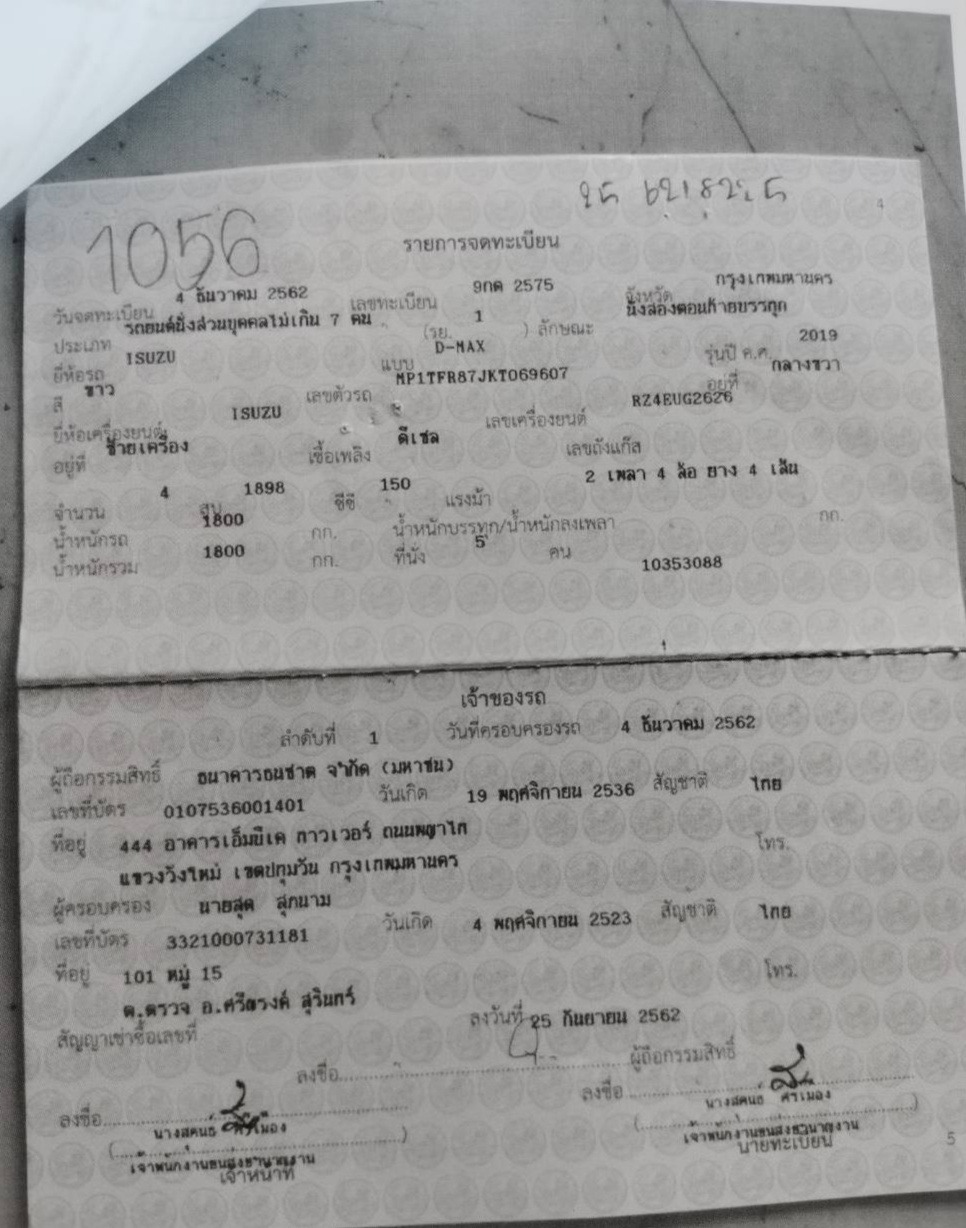 4
1056
รายการจดทะเบียน
วันจดทะเบียน 4 ธันวาคม 2562 เลขทะเบียน 9กด 2575 จังหวัด กรุงเทพมหานคร
ประเภท รถยนต์นั่งส่วนบุคคลไม่เกิน 7 คน (รย. 1 ) ลักษณะ นั่งสองตอนท้ายบรรทุก
ยี่ห้อรถ ISUZU แบบ D-MAX รุ่นปี ค.ศ. 2019
สี ขาว เลขตัวรถ MP1TFR87JKT069607 อยู่ที่ กลางขวา
ยี่ห้อเครื่องยนต์ ISUZU เลขเครื่องยนต์ RZ4EUG2626
อยู่ที่ ซ้ายเครื่อง เชื้อเพลิง ดีเซล เลขถังแก๊ส
จำนวน 4 สูบ 1898 ซีซี 150 แรงม้า 2 เพลา 4 ล้อ ยาง 4 เส้น
น้ำหนักรถ 1800 กก. น้ำหนักบรรทุก/น้ำหนักลงเพลา กก.
น้ำหนักรวม 1800 กก. ที่นั่ง 5 คน 10353088
เจ้าของรถ
ลำดับที่ 1 วันที่ครอบครองรถ 4 ธันวาคม 2562
ผู้ถือกรรมสิทธิ์ ธนาคารธนชาต จำกัด (มหาชน)
เลขที่บัตร 0107536001401 วันเกิด 19 พฤศจิกายน 2536 สัญชาติ ไทย
ที่อยู่ 444 อาคารเอ็มบีเค ทาวเวอร์ ถนนพญาไท โทร.
แขวงวังใหม่ เขตปทุมวัน กรุงเทพมหานคร
ผู้ครอบครอง นายสุด สุกนาม
เลขที่บัตร 3321000731181 วันเกิด 4 พฤศจิกายน 2523 สัญชาติ ไทย
ที่อยู่ 101 หมู่ 15 โทร.
ต.ตรวจ อ.ศรีณรงค์ สุรินทร์
สัญญาเช่าซื้อเลขที่ ลงวันที่ 25 กันยายน 2562
ลงชื่อ ผู้ถือกรรมสิทธิ์
ลงชื่อ ลงชื่อ
เจ้าพนักงานขนส่งชำนาญงาน เจ้าพนักงานขนส่งชำนาญงาน
เจ้าหน้าที่ นายทะเบียน
5